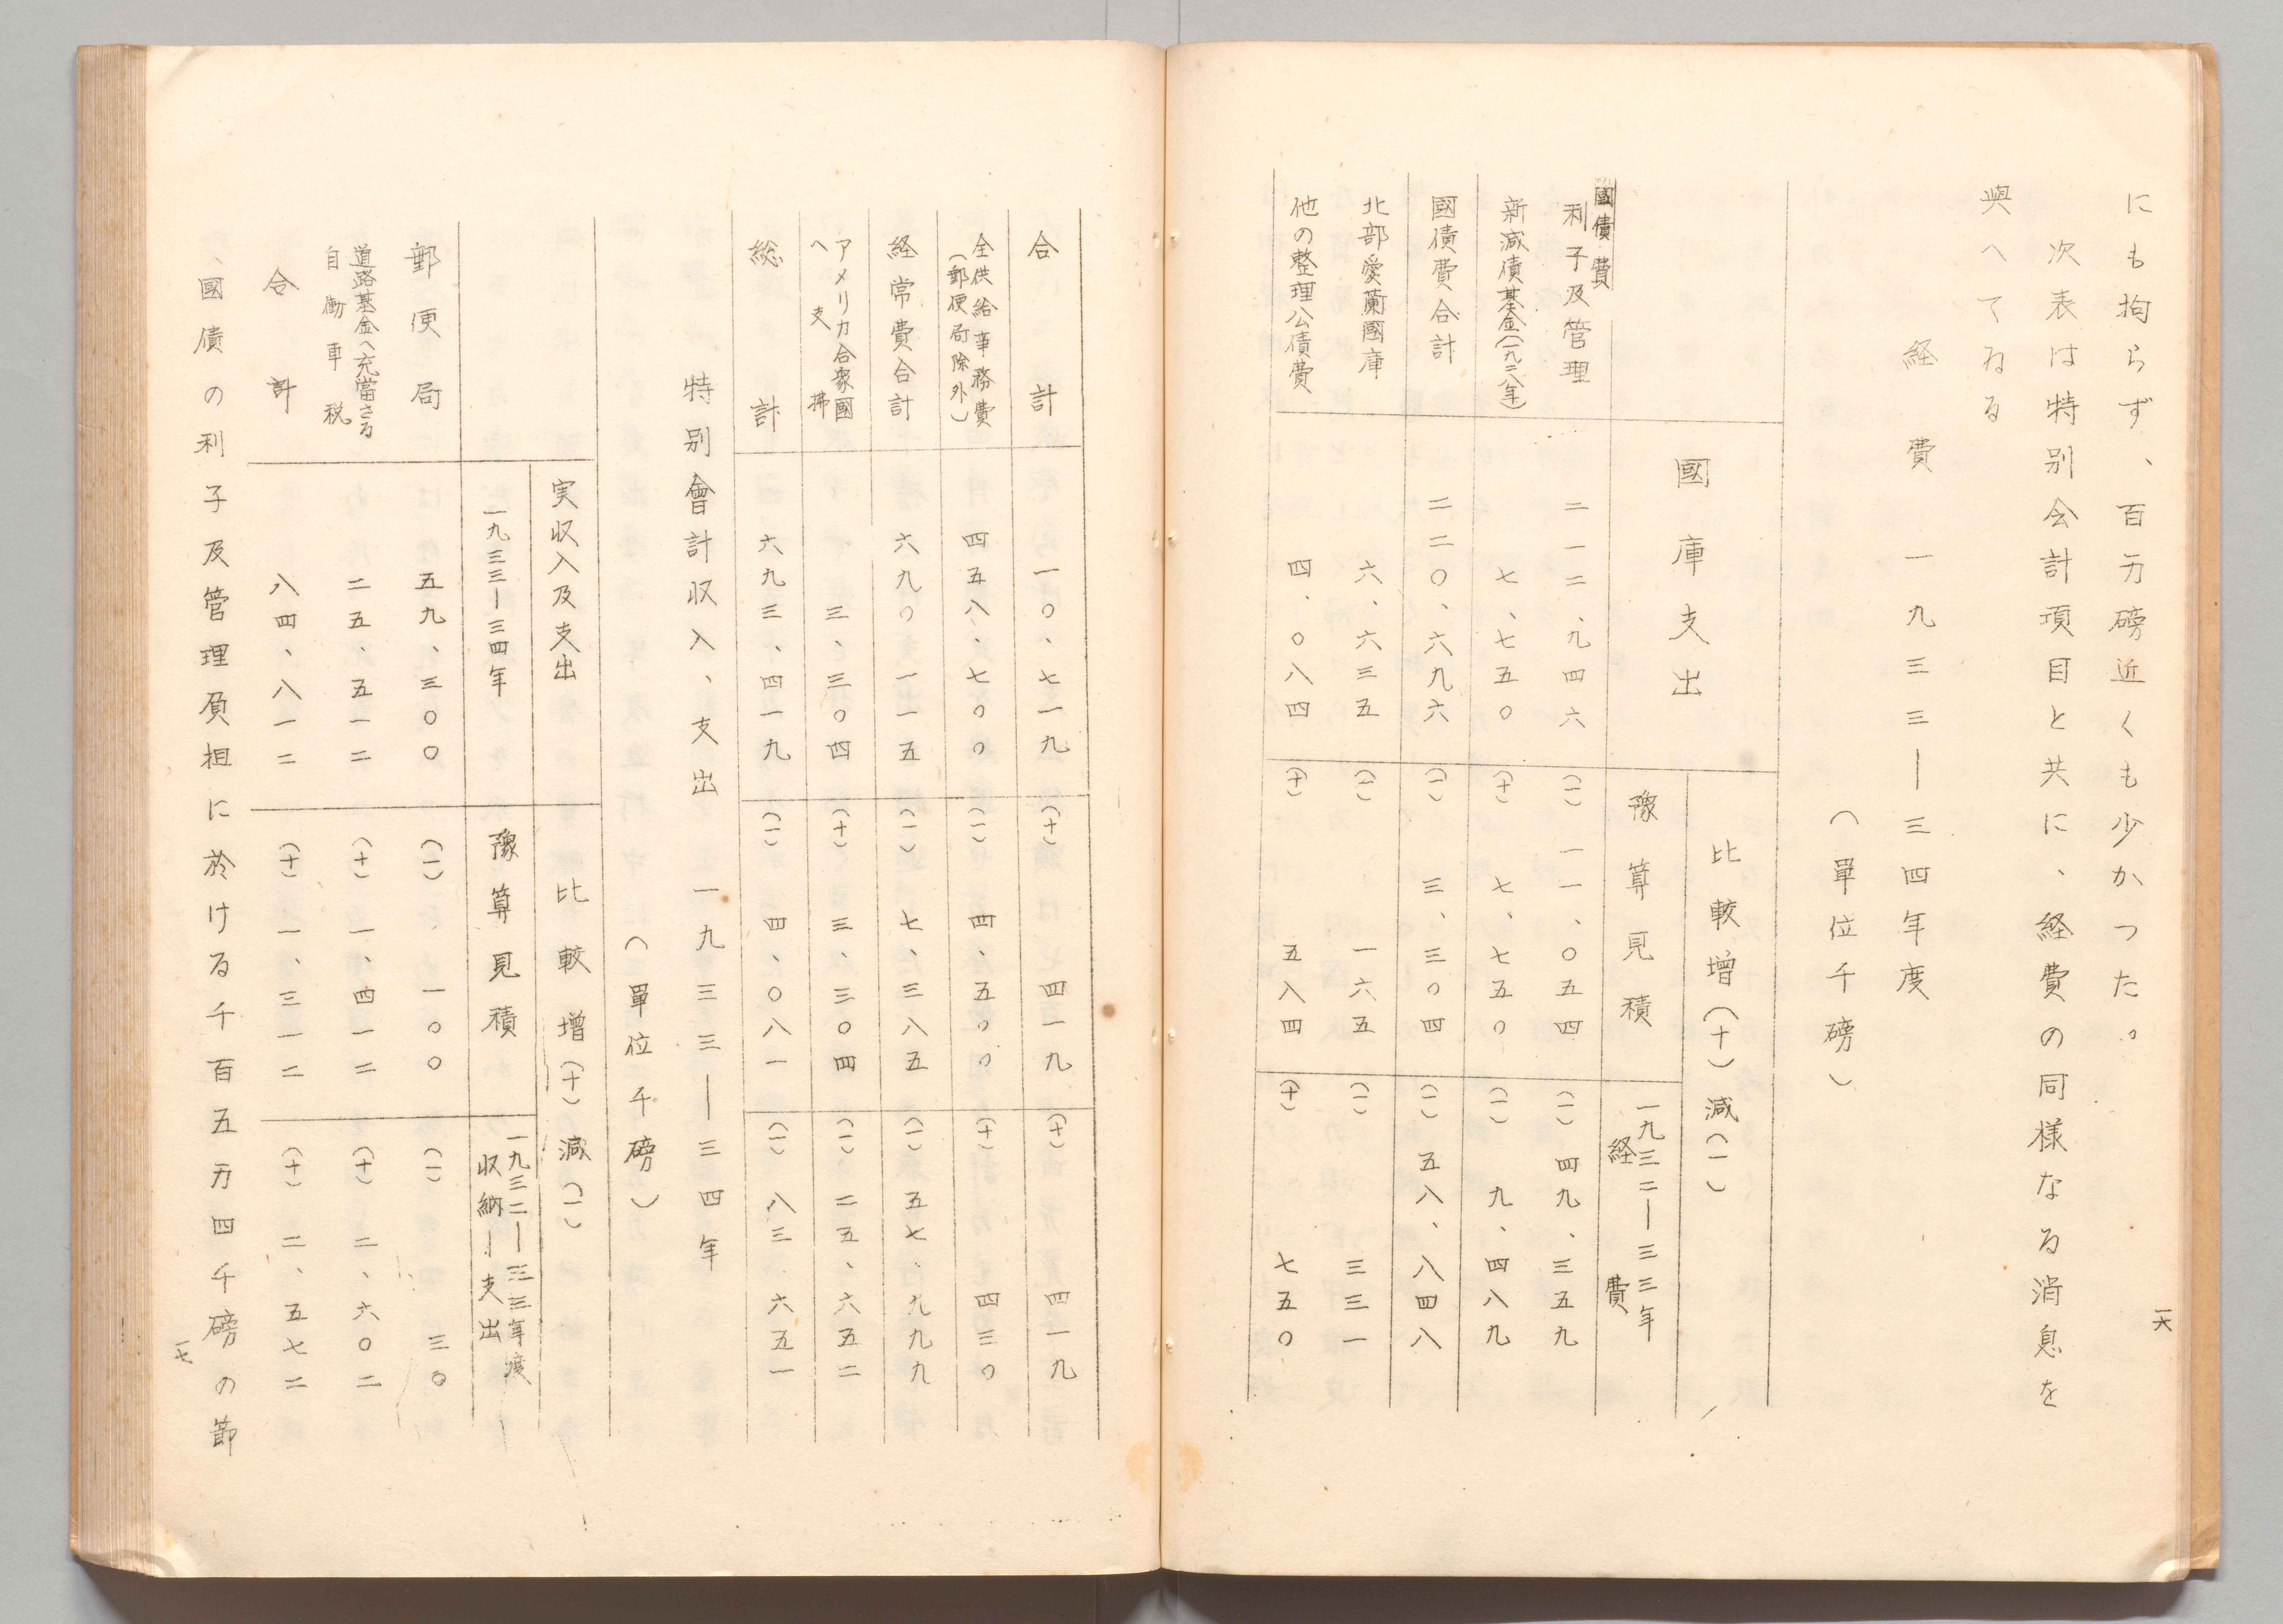 にも拘らず、百万磅近くも少かつた。
次表は特別会計項目と共に、経費の同様なる消息を
與へてゐる
経費 一九三三―三四年度
(單位千磅)
國庫支出
比較増(十)減(一)
豫算見積
一九三二―三三年
経費
國債費
利子及管理 二一二、九四六 (一)一一、〇五四 (一)四九、三五九
新減債基金(一九二八年) 七、七五〇 (十)七、七五〇 (一)九、四八九
國債費合計 二二〇、六九六 (一)三、三〇四 (一)五八、八四八
北部愛蘭國庫 六、六三五 (一)一六五 (一)三三一
他の整理公債費 四、〇八四 (十)五八四 (十)七五〇
一六
合計 一〇、七一九 (十)四一九 (十)四一九
全供給事務費
(郵便局除外) 四五八、七〇〇 (一)四、五〇〇 (十)四三〇
経常費合計 六九〇、一一五 (一)七、三八五 (一)五七、九九九
アメリカ合衆國
へ支拂 三、三〇四 (十)三、三〇四 (一)二五、六五二
総計 六九三、四一九 (一)四、〇八一 (一)八三、六五一
特別會計収入、支出 一九三三―三四年
(單位千磅)
実収入及支出
比較増(十)減(一)
一九三三―三四年
豫算見積
一九三二―三三年度
収納―支出
郵便局 五九、三〇〇 (一)一〇〇 (一)三〇
道路基金へ充當さる
自働車税 二五、五一二 (十)一、四一二 (十)二、六〇二
合計 八四、八一二 (十)一、三一二 (十)二、五七二
國債の利子及管理負担に於ける千百五万四千磅の節
一七